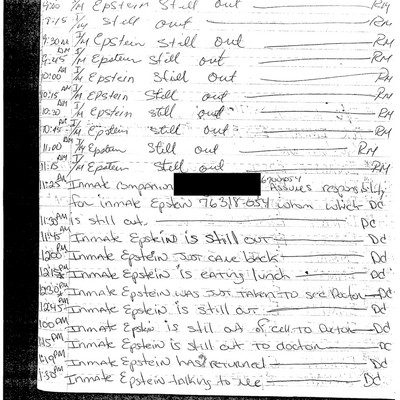 9:20 I/M Epstein Still out RM
9:15 I/M Still out RM
9:30 AM I/M Epstein Still out RM
9:45 AM I/M Epstein Still out RM
10:00 AM I/M Epstein Still out RM
10:15 AM I/M Epstein still out RM
10:30 AM I/M Epstein still out RM
10:45 AM I/M Epstein still out RM
11:00 AM I/M Epstein Still out RM
11:15 AM I/M Epstein Still out RM
11:25 AM Inmate Companion Assumes responsibility
for inmate Epstein 76318-054 whom which DC
11:35 AM is still out. DC
11:45 AM Inmate Epstein is still out DC
12:00 PM Inmate Epstein Just came back DC
12:15 PM Inmate Epstein is eating lunch DC
12:30 PM Inmate Epstein was just taken to see Doctor DC
12:45 PM Inmate Epstein is still out DC
1:00 PM Inmate Epstein is still out of cell to Doctor DC
1:15 PM Inmate Epstein is still out to doctor DC
1:19 PM Inmate Epstein has returned DC
1:30 PM Inmate Epstein talking to me DC